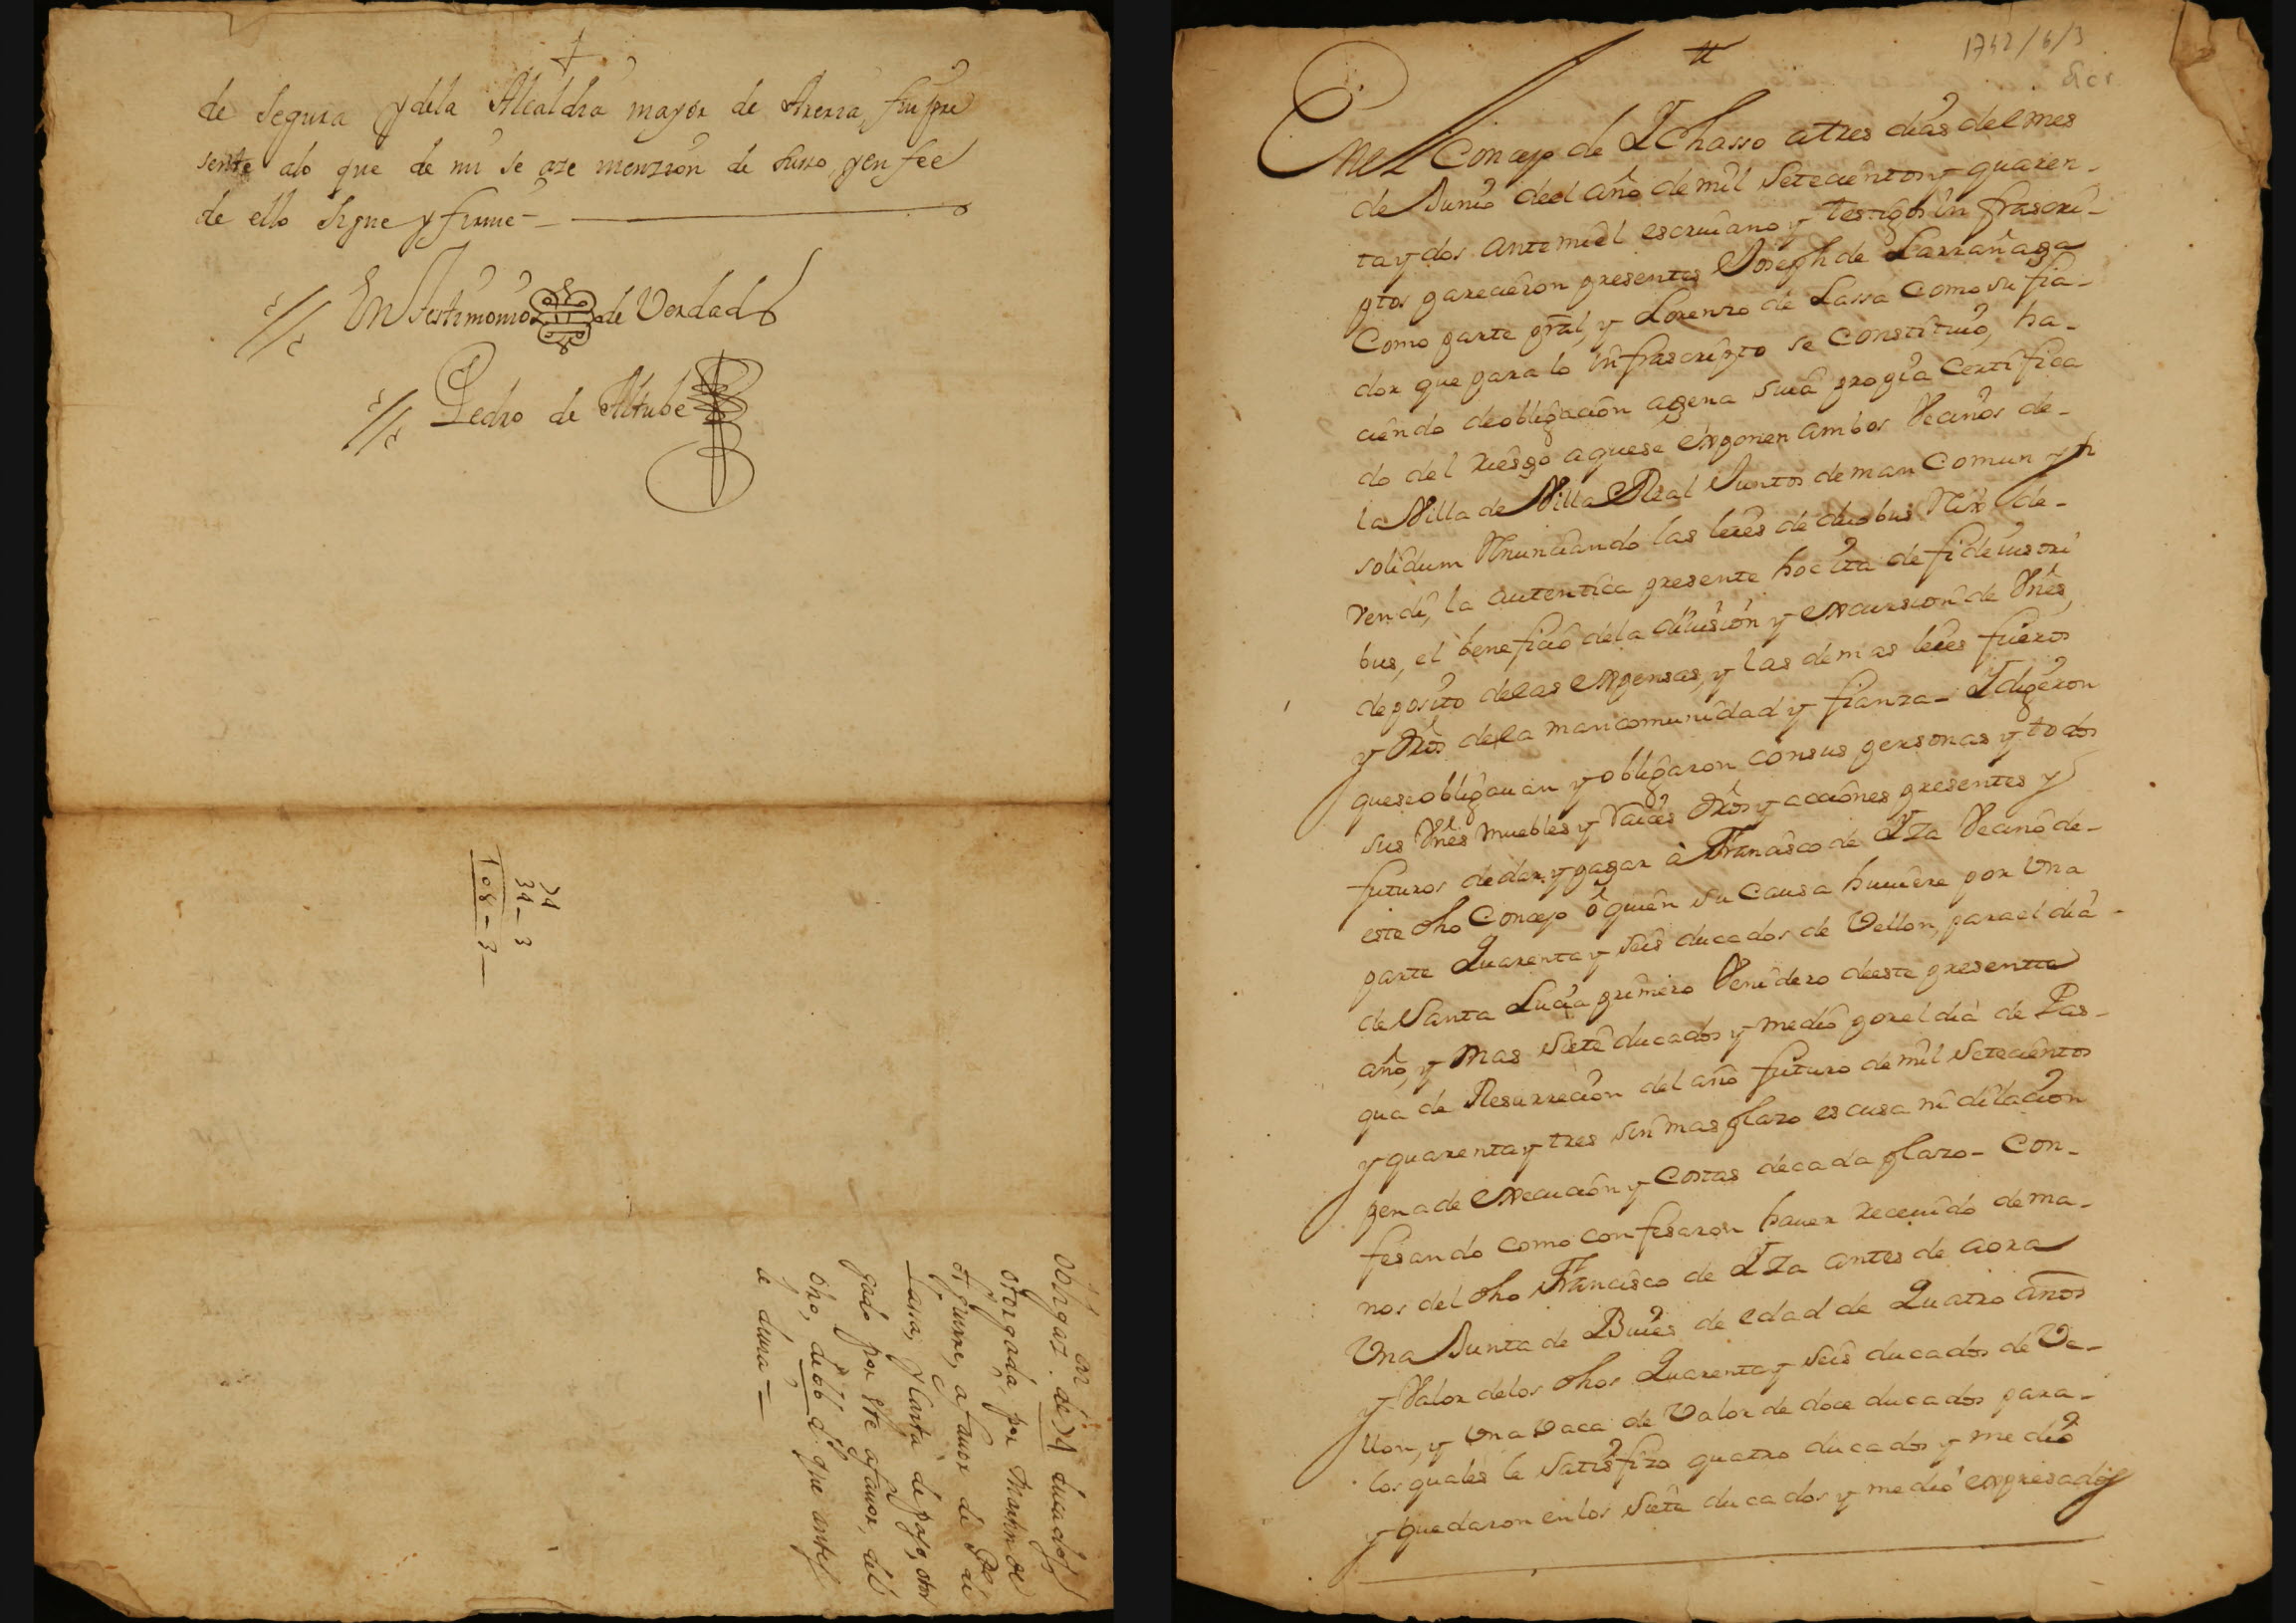 de Segura y dela Alcaldia mayor de Areria, fui pre
sente alo que de mi se aze menzion de suso, y en fee
de ello signe y firme –
En Testimonio de Verdad
Pedro de Altube
74
34 – 3
108 – 3 –
Obligaz.on de 74 ducados
otorgada, por Martin de
, a fauor de P.o de
Lassa, y Carta de pago, otor
gado por este afauor, del
dho, de ob d.s que antes
le deuia =
1742/6/3
En el Concejo de Ychasso a tres dias del mes
de Junio deel año de mil Setecientos y quaren-
ta y dos ante mi el escriuano y testigos in frascri-
ptos parecieron presentes Joseph de Larrañaga
Como parte prâl, y Lorenzo de Lassa Como su fia-
dor que para lo infrascripto se Constituió, ha-
ciendo de obligación agena suia propia Certifica
do del riesgo a que se exponen ambos Vecinos de-
la Villa de Villa Real Juntos de man Comun y in
solidum Renunciando las leies de duobus Rex de-
vendi, la autentica presente hoc ita de fideiusori
bus, el beneficio de la diuision y excursion de Vnês,
deposito de las expensas, y las demas leies fueros
y drôs de la mancomunidad y fianza – Y digeron
que se obligauan y obligaron con sus personas y todos
sus Vnês muebles y raices drôs y acciones presentes y
futuros de dar y pagar à Francisco de Yza Vecino de-
este dho Concejo ô quien su Causa huuiere por Una
parte Quarenta y seis ducados de Vellon, para el dia
de Santa Lucia primero Venidero de este presente
año, y mas siete ducados y medio por el dia de Pas-
qua de Resurrecion del año futuro de mil Setecientos
y quarenta y tres sin mas plazo escusa ni dilacion
pena de execucion y Costas de cada plazo – Con-
fesando como confesaron hauer receuido de ma-
nos del dho Francisco de Yza antes de aora
Una Junta de Buies de edad de Quatro años
y Valor de los dhos Quarenta y seis ducados de Ve-
llon, y Una Vaca de Valor de doce ducados para-
los quales le satisfizo quatro ducados y medio
y quedaron en los siete ducados y medio expresados